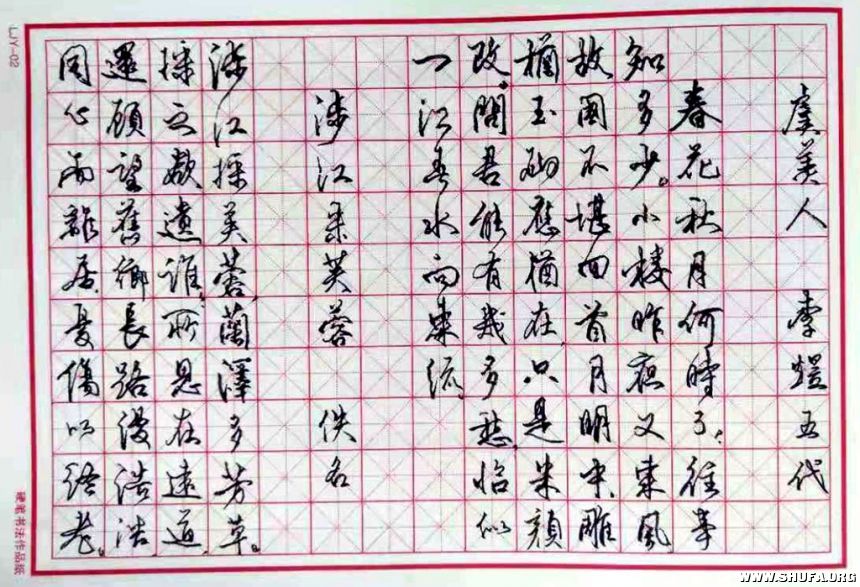 虞美人 李煜五代
春花秋月何時了；往事
知多少。小樓昨夜又東風
故國不堪回首月明中.雕
欄玉砌應猶在,只是朱顏
改。問君能有幾多愁,恰似
一江春水向東流。
涉江采芙蓉 佚名
涉江採芙蓉,蘭澤多芳草。
採之欲遺誰,所思在遠道.
還顧望舊鄉,長路漫浩浩.
同心而離居,憂傷以終老。
LJY-02
硬笔书法作品纸
WWW.SHUFA.ORG